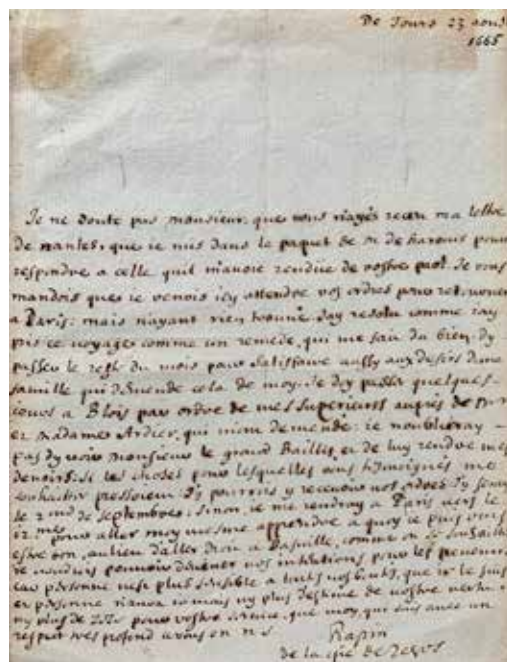 De Tours 23 aoust
1665
Je ne doute pas monsieur, que vous n'ayés receu ma lettre
de nantes, que ie mis dans le paquet de m de harouis pour
respondre a celle quil m'avoit rendue de vostre part. Je vous
mandois que ie venois icy attendre vos ordres pour retourner
a Paris: mais n'ayant rien trouvé, Jay resolu comme iay
pris ce voyage comme un remede, qui me fait du bien, dy
passer le reste du mois pour satisfaire aussy aux desirs dune
famille qui demende cela de moy. Je doy passer quelques
iours a Blois par ordre de mes superieurs auprès de Mr
et Madame Ardier, qui m'ont demendé: ie n'oublieray
pas dy voir monsieur le grand Baillif, et de luy rendre mes
devoirs. Si les choses pour lesquelles vous me
souhaittés pressoient Jy pourrois y recevoir vos ordres Jy seray
le 2 de septembre: sinon, ie me rendray a Paris vers le
12 pour aller moy mesme apprendre a quoy ie puis vous
estre bon, au lieu d'aller droit a Basville, comme on le souhaitte
ie voudrois pouvoir deviner vos intentions pour les prevenir
car personne n'est plus sensible a vos bontés, que ie le suis
et personne n'aura iamais ny plus destime de vostre vertu
ny plus de zele pour vostre service, que moy, qui suis avec un
respect tres profond a vous en n s
Rapin
de la cie de Jesus